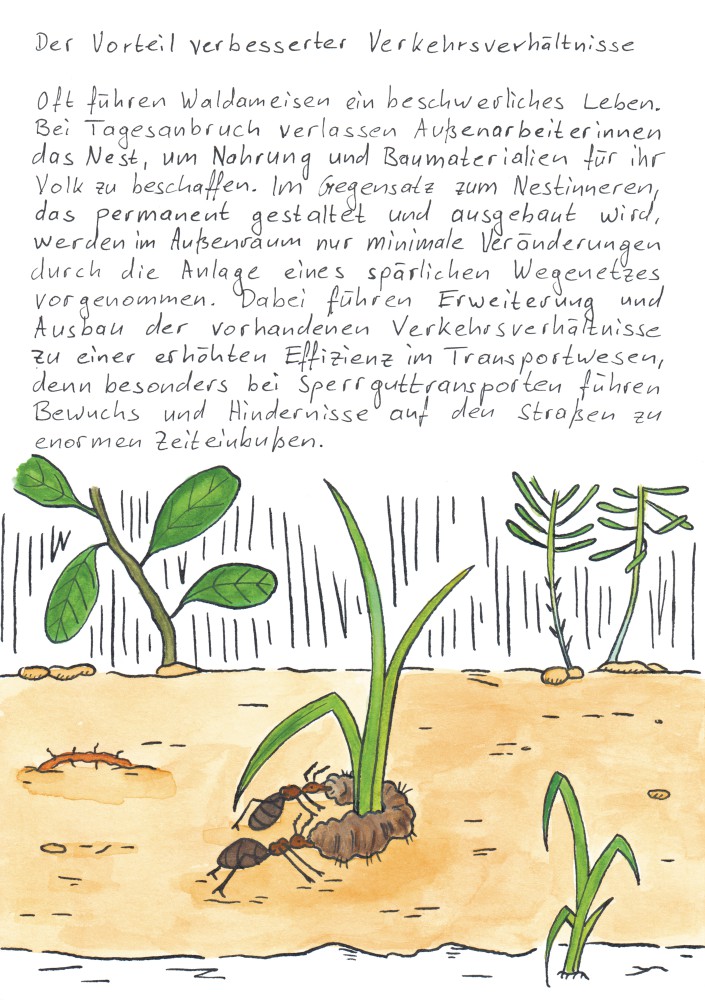 Der Vorteil verbesserter Verkehrsverhältnisse
Oft führen Waldameisen ein beschwerliches Leben.
Bei Tagesanbruch verlassen Außenarbeiterinnen
das Nest, um Nahrung und Baumaterialien für ihr
Volk zu beschaffen. Im Gegensatz zum Nestinneren,
das permanent gestaltet und ausgebaut wird,
werden im Außenraum nur minimale Veränderungen
durch die Anlage eines spärlichen Wegenetzes
vorgenommen. Dabei führen Erweiterung und
Ausbau der vorhandenen Verkehrsverhältnisse
zu einer erhöhten Effizienz im Transportwesen,
denn besonders bei Sperrguttransporten führen
Bewuchs und Hindernisse auf den Straßen zu
enormen Zeiteinbußen.